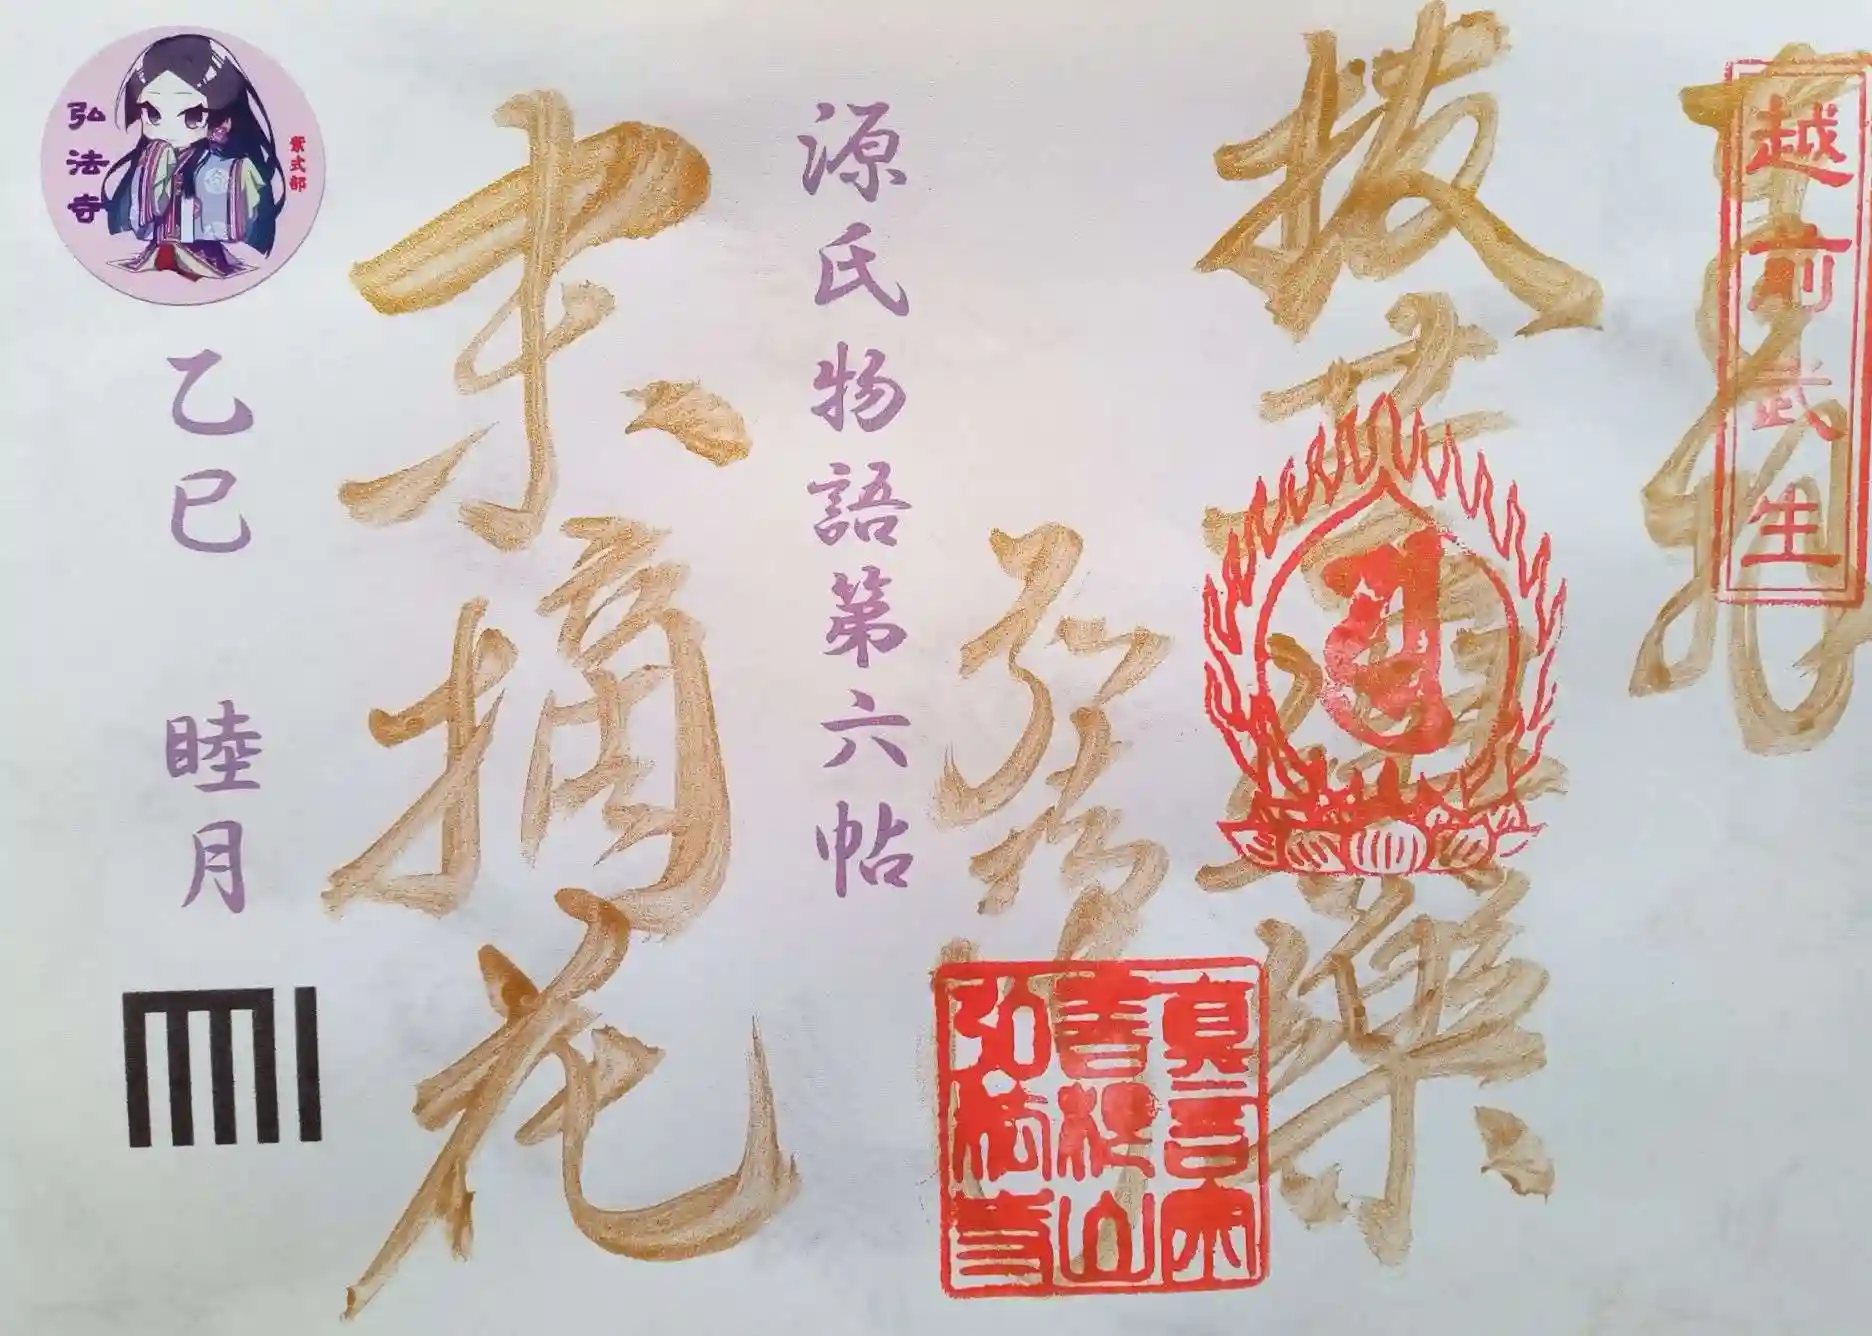 越前武生
奉拝
抜苦與樂
弘法寺
真言宗
善根山
弘法寺
源氏物語第六帖
末摘花
弘法寺
紫式部
乙巳 睦月